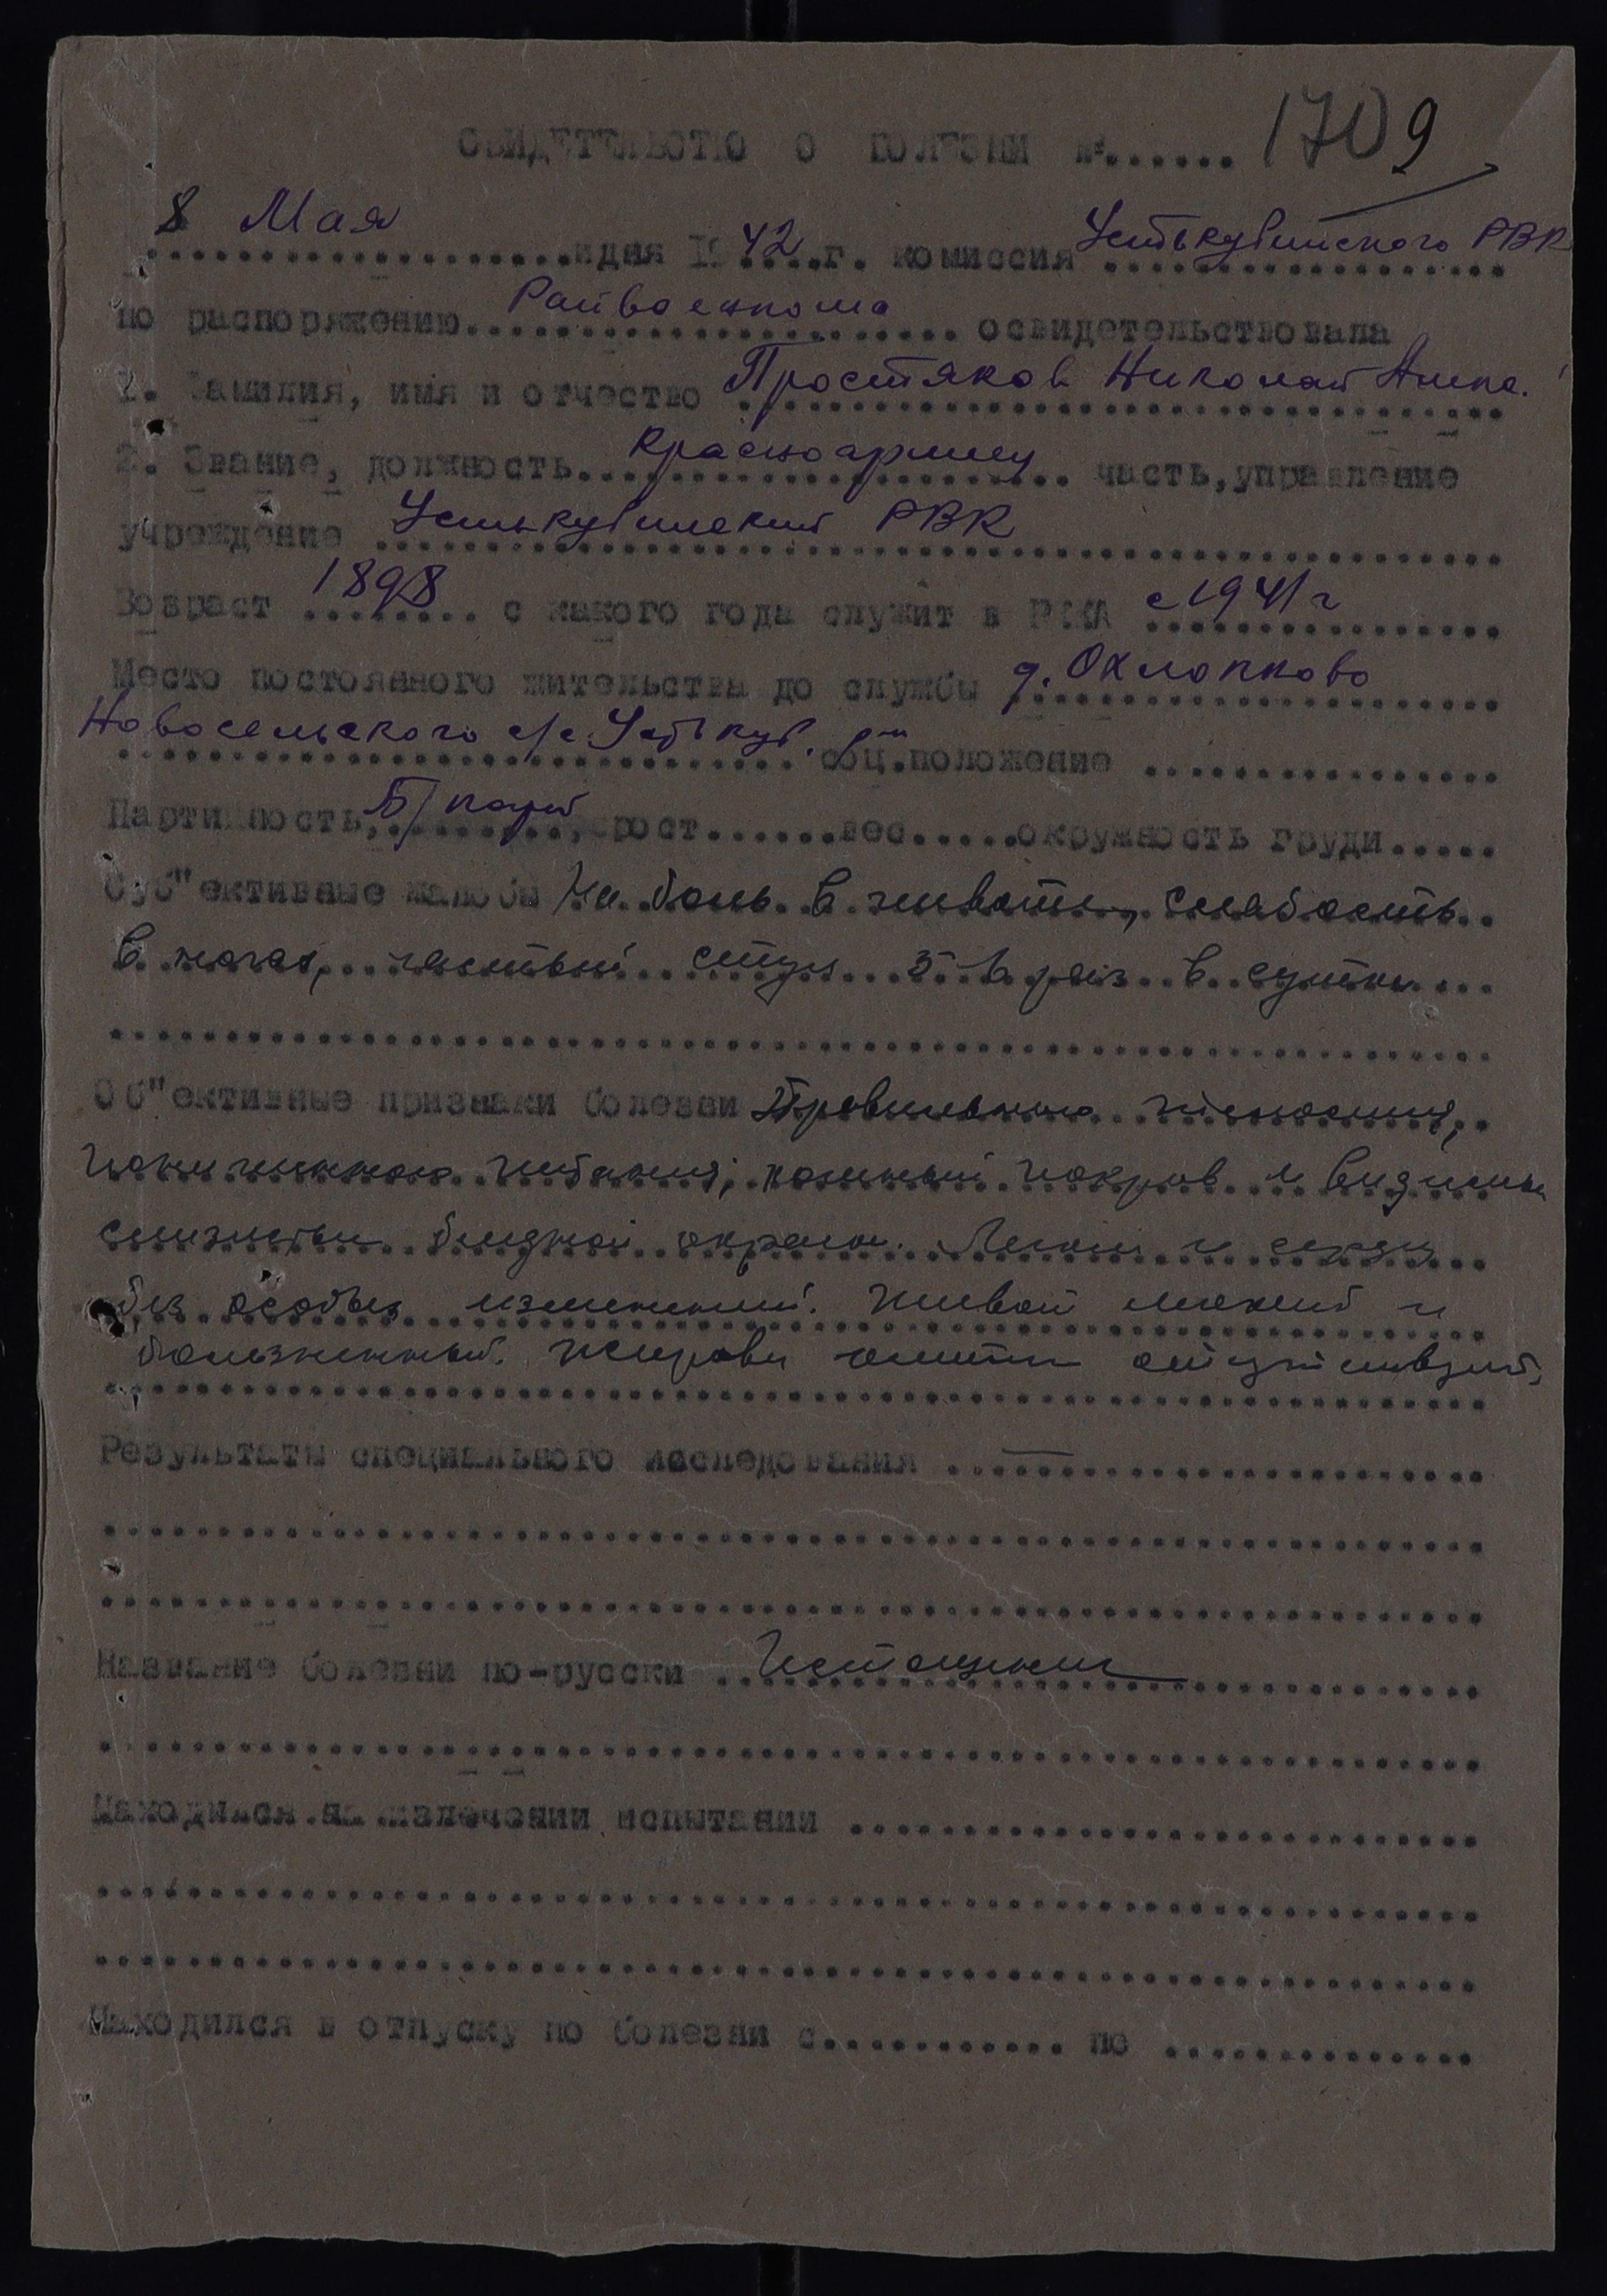 СВИДЕТЕЛЬСТВО О БОЛЕЗНИ №...... 1709
8 Мая
..................дня 1942 г. комиссия Устькубинского РВК
по распоряжению Райвоенкома освидетельствовала
1. Фамилия, имя и отчество Простяков Николай
2. Звание, должность Красноармеец часть, управление
учреждение Устькубинский РВК
Возраст 1898 с какого года служит в РККА с 1941 г
Место постоянного жительства до службы д. Охлопково
Новосельского с/с Устькуб. р-н соц.положение ................
Партийность, Б/парт , рост......вес.....окружность груди.....
Суб"ективные жалобы На боль в животе, слабость
в ногах, частый стул 5-6 раз в сутки
Об"ективные признаки болезни Правильного телосложения,
пониженного питания, кожный покров и видимые
слизистые бледной окраски. Легкие и сердце
без особых изменений. Живот мягкий и
болезненный. Жировая отсутствует.
Результаты специального исследования ........................
Название болезни по-русски Истощение
Находился на излечении испытании ......................
Находился в отпуску по болезни с............ по ..............